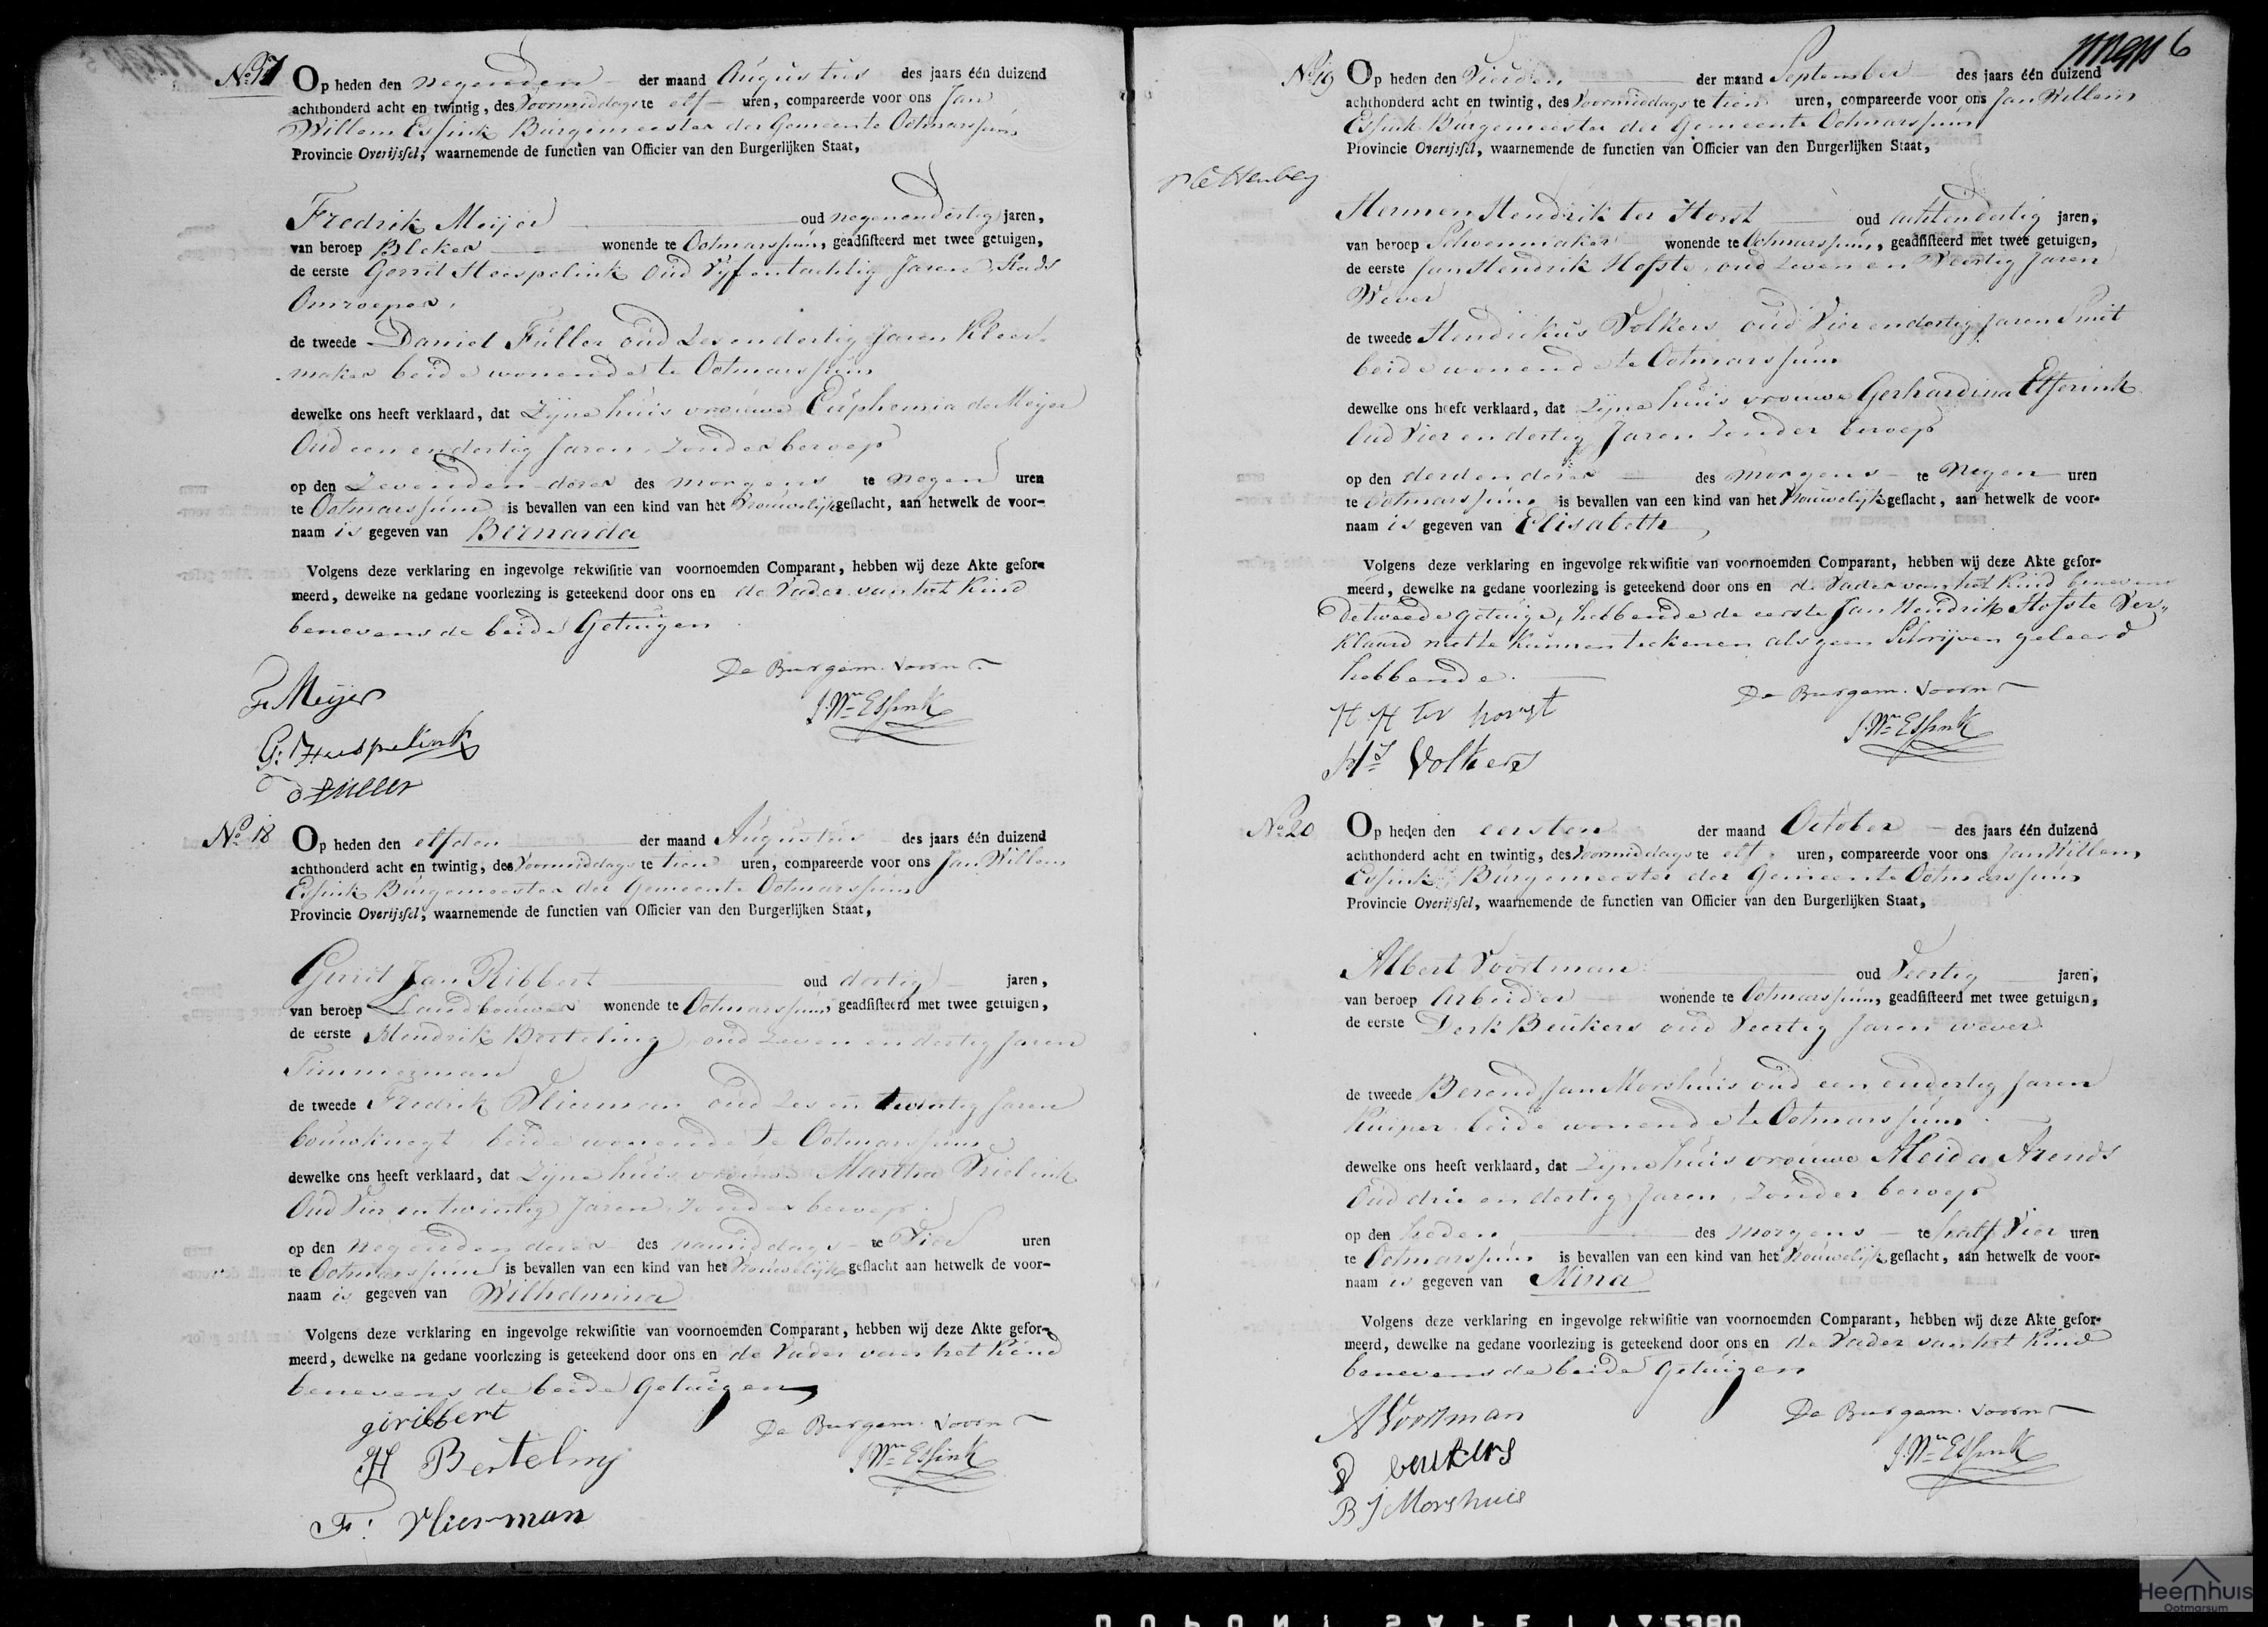 No 17 Op heden den negenden der maand Augustus des jaars één duizend
achthonderd acht en twintig, des Voormiddags te elf uren, compareerde voor ons Jan
Willem Essink Burgemeester der Gemeente Ootmarssum
Provincie Overijssel, waarnemende de functien van Officier van den Burgerlijken Staat,
Fredrik Meijer oud negenendertig jaren,
van beroep Bleker wonende te Ootmarssum, geadsisteerd met twee getuigen,
de eerste Gerrit Heespelink oud Vyfentachtig Jaren Stads
Omroeper,
de tweede Daniel Fuller oud Zesendertig Jaren Kleer-
maker beide wonende te Ootmarssum
dewelke ons heeft verklaard, dat Zijne huis vrouwe Euphemia de Meijer
Oud een en dertig Jaren, Zonder beroep
op den Zevenden dezer des morgens te Negen uren
te Ootmarssum is bevallen van een kind van het Vrouwelijk geslacht, aan hetwelk de voor-
naam is gegeven van Bernarda
Volgens deze verklaring en ingevolge rekwisitie van voornoemden Comparant, hebben wij deze Akte gefor-
meerd, dewelke na gedane voorlezing is geteekend door ons en de Vader van het Kind
benevens de beide Getuigen
De Burgem. voorn
F. Meijer
J. Wm Essink
G: Heespelink
D Fuller
No 18 Op heden den elfden der maand Augustus des jaars één duizend
achthonderd acht en twintig, des Voormiddags te tien uren, compareerde voor ons Jan Willem
Essink Burgemeester der Gemeente Ootmarssum
Provincie Overijssel, waarnemende de functien van Officier van den Burgerlijken Staat,
Gerrit Jan Ribbert oud dertig jaren,
van beroep Landbouwer wonende te Ootmarssum, geadsisteerd met twee getuigen,
de eerste Hendrik Berteling oud Zeven en dertig Jaren
Timmerman
de tweede Fredrik Vlierman oud Zes en twintig Jaren
bouwknegt beide wonende te Ootmarssum
dewelke ons heeft verklaard, dat Zijne huis vrouwe Martha Vrielink
Oud Vier en twintig Jaren, Zonder beroep.
op den Negenden dezer des namiddags te Vier uren
te Ootmarssum is bevallen van een kind van het Vrouwelijk geslacht aan hetwelk de voor-
naam is gegeven van Wilhelmina
Volgens deze verklaring en ingevolge rekwisitie van voornoemden Comparant, hebben wij deze Akte gefor-
meerd, dewelke na gedane voorlezing is geteekend door ons en de Vader van het Kind
benevens de beide Getuigen
gj ribbert
De Burgem. voorn
H Berteling
J. Wm Essink
F: Vlierman
6
No 19 Op heden den Vierden der maand September des jaars één duizend
achthonderd acht en twintig, des Voormiddags te tien uren, compareerde voor ons Jan Willem
Essink Burgemeester der Gemeente Ootmarssum
Provincie Overijssel, waarnemende de functien van Officier van den Burgerlijken Staat,
Hermen Hendrik ter Horst oud achtendertig jaren,
van beroep Schoenmaker wonende te Ootmarssum, geadsisteerd met twee getuigen,
de eerste Jan Hendrik Hofste, oud Zeven en Veertig Jaren
Wever
de tweede Hendrikus Volkers oud Vier en dertig Jaren Smit
beide wonende te Ootmarssum
dewelke ons heeft verklaard, dat Zijne huis vrouwe Gerhardina Elferink
Oud Vier en dertig Jaren Zonder beroep
op den derden dezer des morgens te Negen uren
te Ootmarssum is bevallen van een kind van het Vrouwelijk geslacht, aan hetwelk de voor-
naam is gegeven van Elisabeth
Volgens deze verklaring en ingevolge rekwisitie van voornoemden Comparant, hebben wij deze Akte gefor-
meerd, dewelke na gedane voorlezing is geteekend door ons en de Vader van het Kind benevens
de tweede getuige, hebbende de eerste Jan Hendrik Hofste Ver-
klaard niet te kunnen teekenen als geen Schrijven geleerd
hebbende.
De Burgem. voorn
H H ter horst
J. Wm Essink
Hs Volkers
No 20 Op heden den eersten der maand October des jaars één duizend
achthonderd acht en twintig, des Voormiddags te elf uren, compareerde voor ons Jan Willem
Essink Burgemeester der Gemeente Ootmarssum
Provincie Overijssel, waarnemende de functien van Officier van den Burgerlijken Staat,
Albert Voortman oud Veertig jaren,
van beroep Arbeider wonende te Ootmarssum, geadsisteerd met twee getuigen,
de eerste Derk Beukers oud Veertig Jaren wever.
de tweede Berend Jan Morshuis oud een en dertig Jaren
Kuiper beide wonende te Ootmarssum.
dewelke ons heeft verklaard, dat Zijne huis vrouwe Aleida Arends
Oud drie en dertig Jaren, Zonder beroep
op den heden des morgens te half Vier uren
te Ootmarssum is bevallen van een kind van het Vrouwelijk geslacht, aan hetwelk de voor-
naam is gegeven van Mina
Volgens deze verklaring en ingevolge rekwisitie van voornoemden Comparant, hebben wij deze Akte gefor-
meerd, dewelke na gedane voorlezing is geteekend door ons en de Vader van het Kind
benevens de beide Getuigen
A Voortman
De Burgem. voorn
D beukers
J. Wm Essink
B J Morshuis
Heemhuis
Ootmarsum